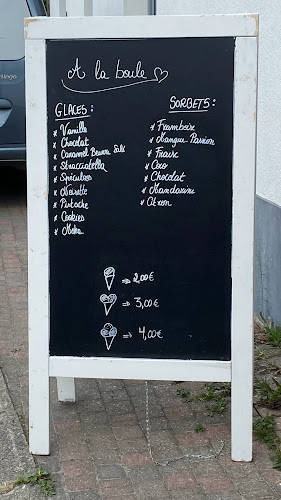 lingo
A la boule
GLACES :
* Vanille
* Chocolat
* Caramel Beurre Salé
* Stracciatella
* Spéculoos
* Noisette
* Pistache
* Cookies
* Moka
SORBETS :
* Framboise
* Mangue Passion
* Fraise
* Coco
* Chocolat
* Mandarine
* Citron
⇒ 2,00€
⇒ 3,00€
⇒ 4,00€